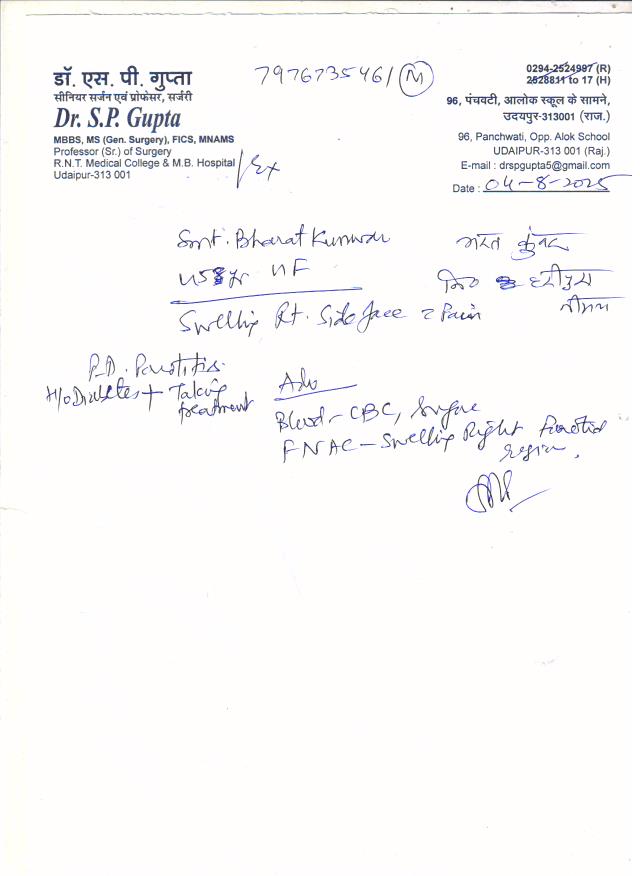 डॉ. एस. पी. गुप्ता
सीनियर सर्जन एवं प्रोफेसर, सर्जरी
Dr. S.P. Gupta
MBBS, MS (Gen. Surgery), FICS, MNAMS
Professor (Sr.) of Surgery
R.N.T. Medical College & M.B. Hospital
Udaipur-313 001
/Ex
797673546/ (M)
0294-2524987 (R)
2528811 to 17 (H)
96, पंचवटी, आलोक स्कूल के सामने,
उदयपुर-313001 (राज.)
96, Panchwati, Opp. Alok School
UDAIPUR-313 001 (Raj.)
E-mail : drspgupta5@gmail.com
Date : 04-8-2025
Smt. Bharat Kunwar
कुंवर
F
Swelling Rt. Side face c Pain
P.D. Parotitis.
H/o Diabetes + Taking
treatment
Adv
Blood - CBC, Sugar
FNAC - Swelling Right Parotid
region.